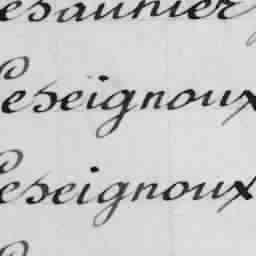 esaunier
Leseignoux
Leseignoux